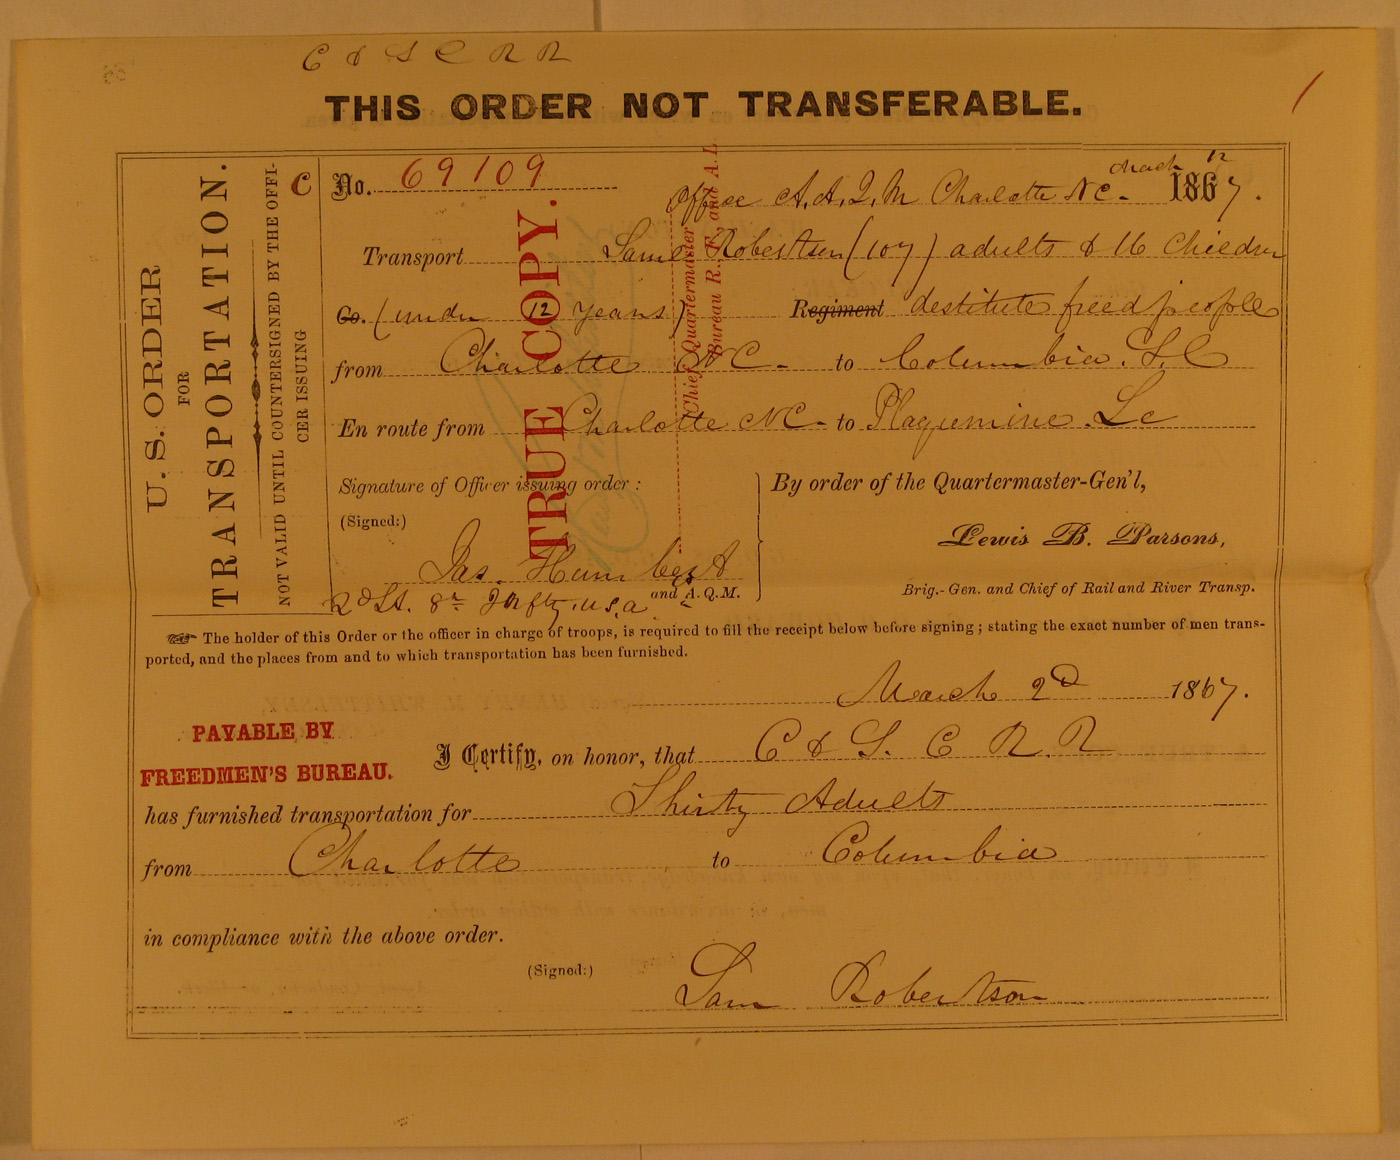 C & S C R R
THIS ORDER NOT TRANSFERABLE.
U. S. ORDER
FOR
TRANSPORTATION.
NOT VALID UNTIL COUNTERSIGNED BY THE OFFI-
CER ISSUING
C
No. 69109
March
Office A. A. Q. M Charlotte NC. 1867.
Transport Saml Robertson (107) adults & 16 Children
Co. (under 12 years) Regiment destitute freed people
from Charlotte NC. to Columbia. S. C
En route from Charlotte NC. to Plaquemine. La
Signature of Officer issuing order:
(Signed:)
Jas. Humbert
2d Lt. 8th Infty. U.S.A and A. Q. M.
By order of the Quartermaster-Gen'l,
Lewis B. Parsons,
Brig.-Gen. and Chief of Rail and River Transp.
TRUE COPY.
Chief Quartermaster
Bureau R., F., and A. L.
The holder of this Order or the officer in charge of troops, is required to fill the receipt below before signing; stating the exact number of men trans-
ported, and the places from and to which transportation has been furnished.
March 2d 1867.
PAYABLE BY
FREEDMEN'S BUREAU.
I Certify, on honor, that C & S. C R. R
has furnished transportation for Thirty Adults
from Charlotte to Columbia
in compliance with the above order.
(Signed:) Sam Robertson